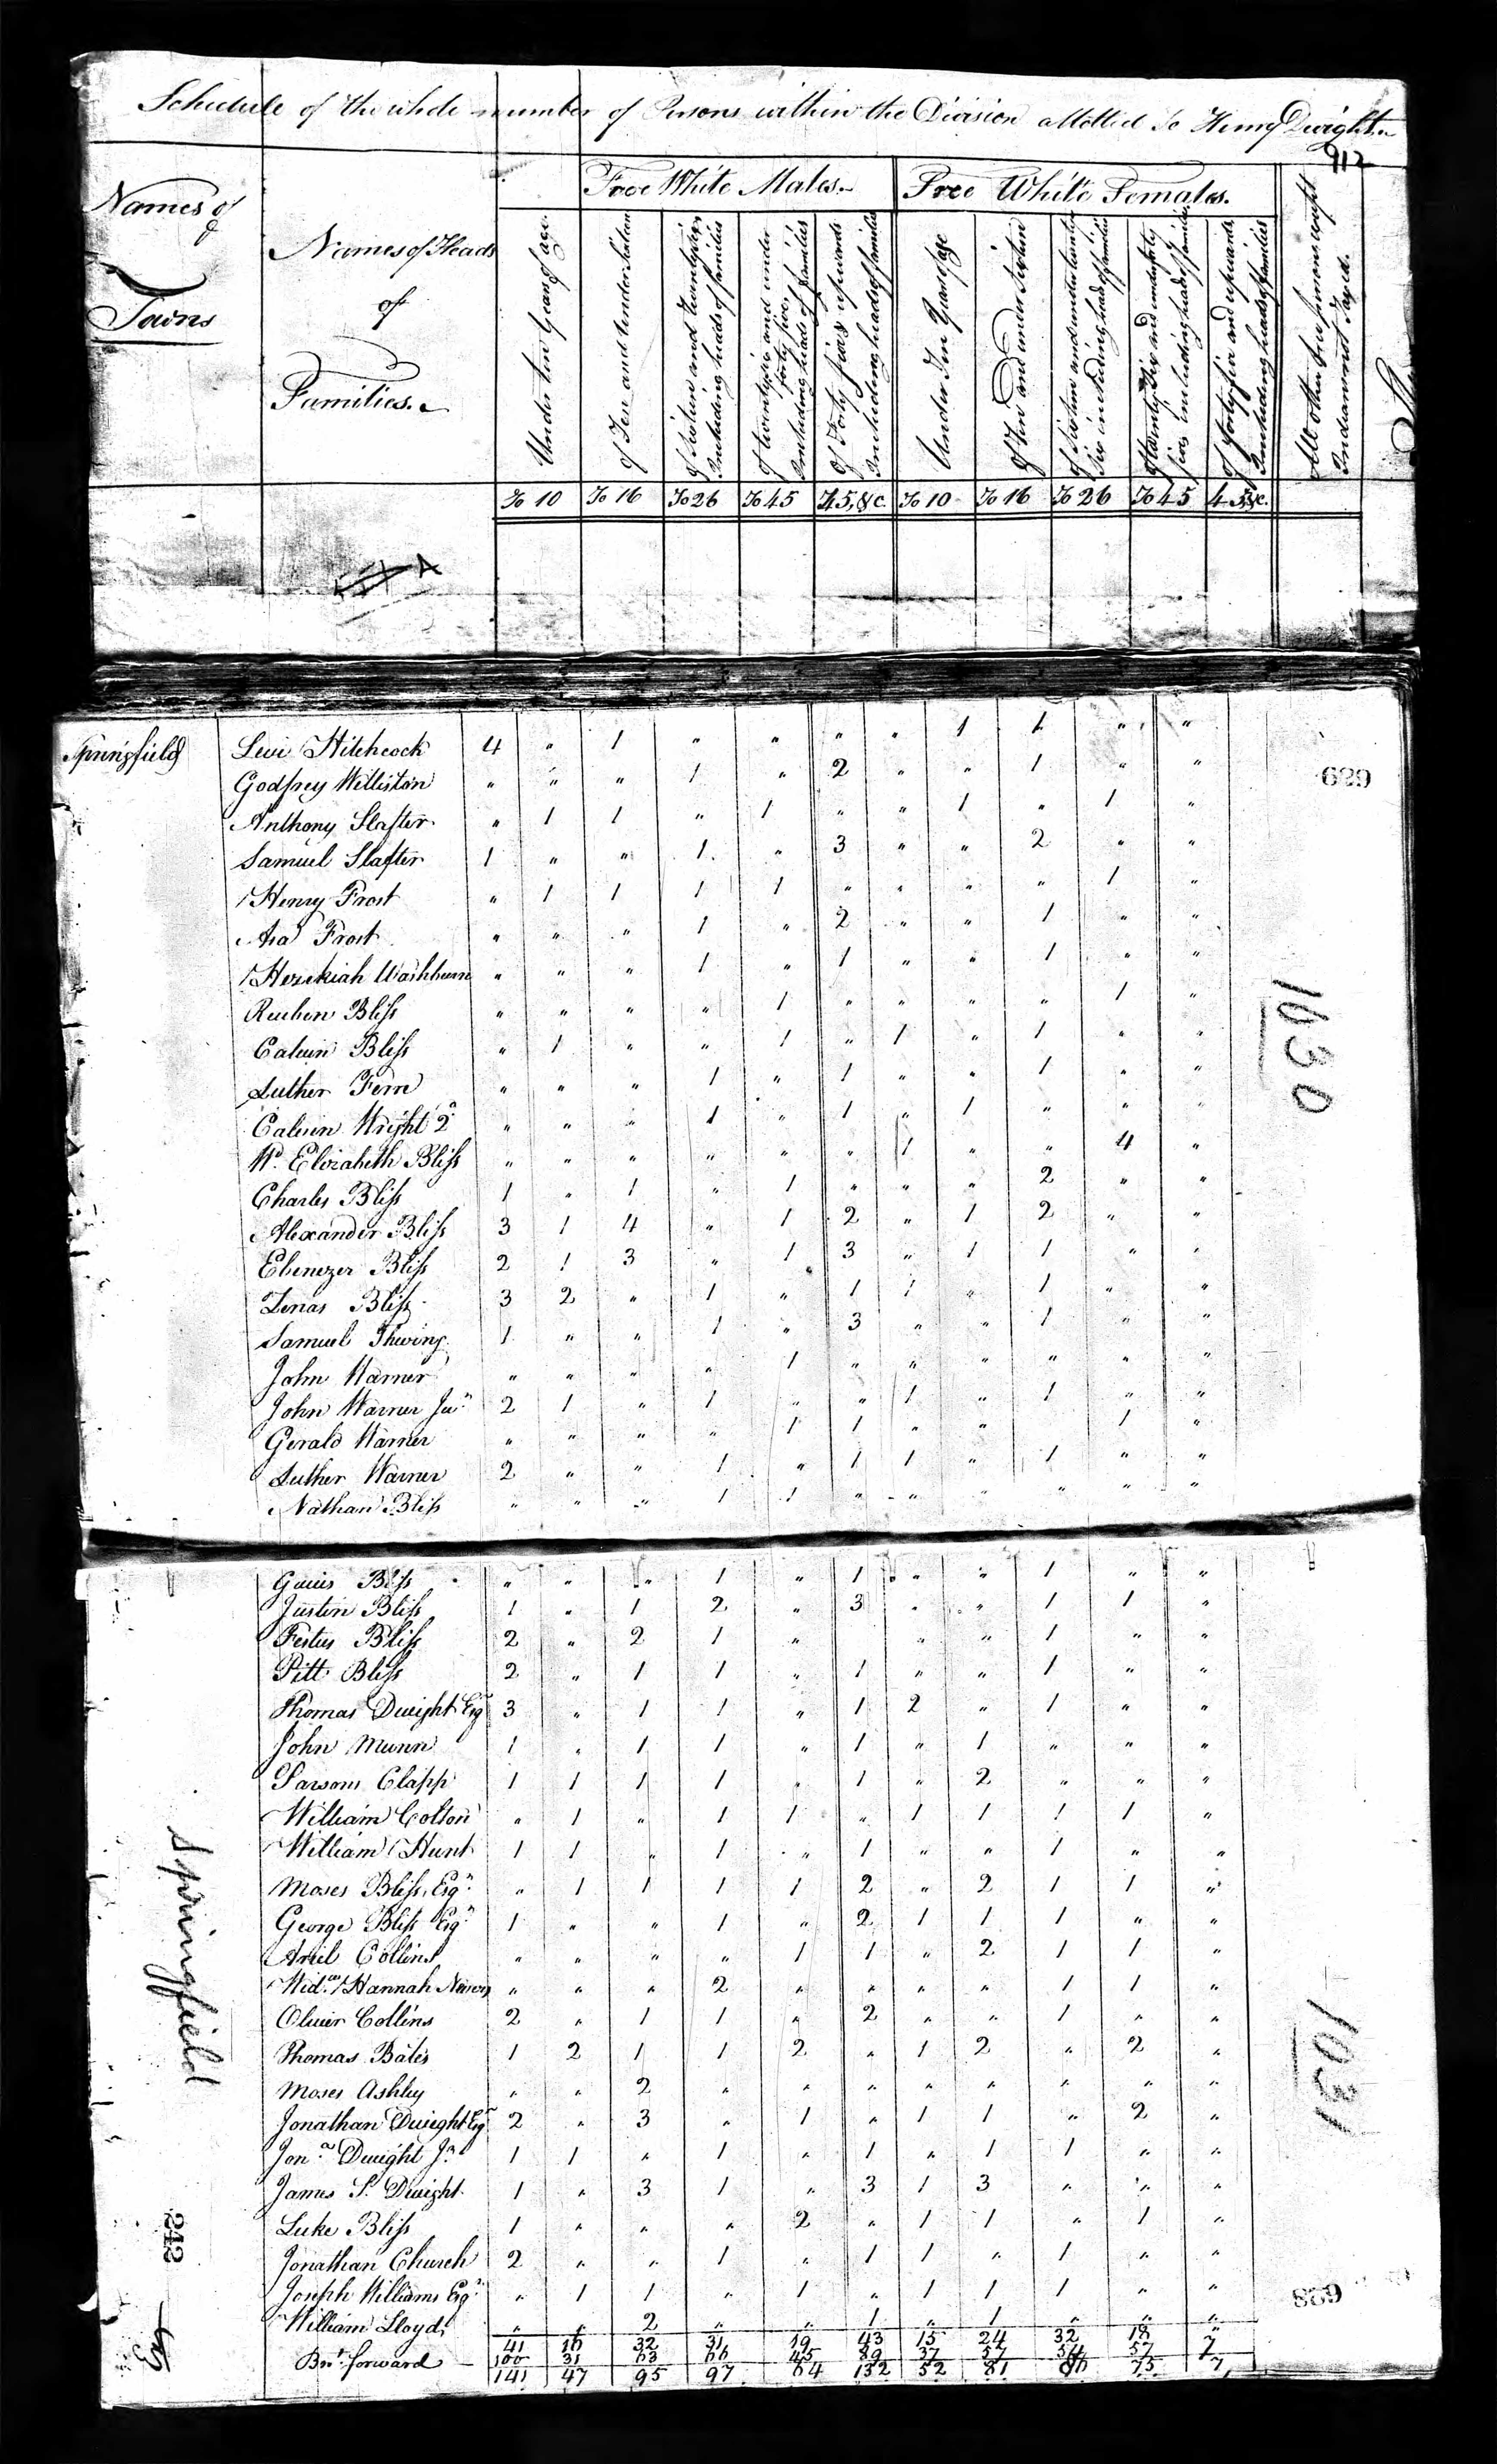 Schedule of the whole number of Persons within the Division allotted to Henry Dwight
912
Names of
Towns
Names of Heads
of
Families.
Free White Males.
Free White Females.
Under ten Years of age
of Ten and under sixteen
of Sixteen and under twenty six Including heads of families
of twenty six and under forty five Including heads of families
of Forty five & upwards Including heads of families
Under Ten Years of age
of Ten and under Sixteen
of Sixteen and under twenty Six including heads of families
of twenty Six and under forty five including heads of families
of forty five and upwards Including heads of families
All other free persons except Indians not Taxed.
To 10 To 16 To 26 To 45 45, &c. To 10 To 16 To 26 To 45 45 &c.
Springfield Levi Hitchcock 4 " 1 " " " " 1 1 " "
629
Godfrey Williston " " " 1 " 2 " " 1 " "
Anthony Slafter " 1 1 " 1 " " 1 " 1 "
Samuel Slafter 1 " " 1 " 3 " " 2 " "
Henry Frost " 1 1 1 1 " " " " 1 "
Asa Frost " " " 1 " 2 " " 1 " "
Hezekiah Washburn " " " 1 " 1 " " 1 " "
Reuben Bliss " " " " 1 " " " " 1 "
Calvin Bliss " 1 " " 1 " 1 " 1 " "
Luther Fern " " " 1 " 1 " " 1 " "
Calvin Wright 2d " " " 1 " 1 " 1 " " "
Wd. Elizabeth Bliss " " " " " " 1 " " 4 "
Charles Bliss 1 " 1 " 1 " " " 2 " "
Alexander Bliss 3 1 4 " 1 2 " 1 2 " "
Ebenezer Bliss 2 1 3 " 1 3 " 1 1 " "
Zenas Bliss 3 2 " 1 " 1 1 " 1 " "
Samuel Thwing 1 " " 1 " 3 " " 1 " "
John Warner " " " " 1 " " " " " "
John Warner Jun 2 1 " 1 " " 1 " 1 " "
Gerald Warner " " " " 1 1 " " 1 "
Luther Warner 2 " " 1 " 1 1 " 1 " "
Nathan Bliss " " " 1 1 " " " " " "
1030
Gaius Bliss " " " 1 " 1 " " 1 " "
Justin Bliss 1 " 1 2 " 3 " " 1 1 "
Festus Bliss 2 " 2 1 " " " 1 " "
Pitt Bliss 2 " 1 1 " 1 " " 1 " "
Thomas Dwight Esq 3 " 1 1 " 1 2 " 1 " "
John Munn 1 " 1 1 " 1 " 1 " " "
Parsons Clapp 1 1 1 1 " 1 " 2 " " "
William Colton " 1 " 1 1 " 1 1 1 1 "
William Hunt 1 1 " 1 " 1 " " 1 " "
Moses Bliss, Esqr. " 1 1 1 1 2 " 2 1 1 "
George Bliss Esqr. 1 " " 1 " 2 1 1 1 " "
Ariel Collins " " " " 1 1 " 2 1 1 "
Widw Hannah " " " 2 " " " " 1 1 "
Oliver Collins 2 " 1 1 " 2 " " 1 " "
Thomas Bates 1 2 1 1 2 " 1 2 " 2 "
Moses Ashley " " 2 " " " " " " " "
Jonathan Dwight Esqr 2 " 3 " 1 " 1 1 " 2 "
Jona. Dwight Jr. 1 1 " 1 " 1 " 1 1 " "
James S. Dwight 1 " 3 1 " 3 1 3 " " "
Luke Bliss 1 " " " 2 " 1 1 " 1 "
Jonathan Church 2 " " 1 " 1 1 " 1 " "
Joseph Williams Esqr. " 1 1 " 1 " 1 1 1 " "
William Lloyd " " 2 " " 1 " 1 " " "
41 16 32 31 19 43 15 24 32 18 "
Brt. forward 100 31 63 66 45 89 37 57 54 57 7
141 47 95 97 64 132 52 81 86 75 7
Springfield
242
1031
889